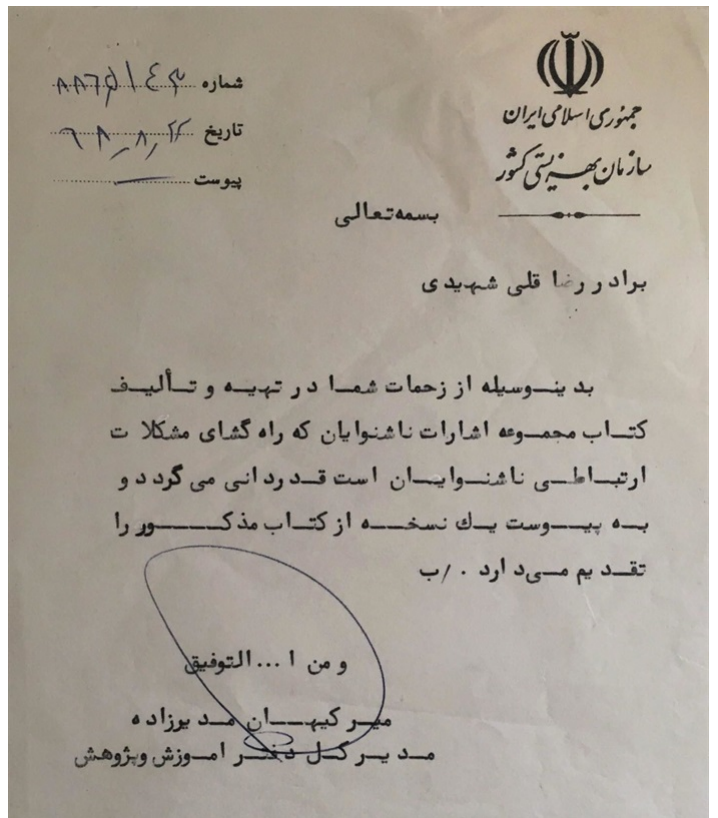 جمهوری اسلامی ایران
سازمان بهزیستی کشور
شماره
تاریخ ۶۸٫۸٫۲۲
پیوست
بسمه تعالی
برادر رضا قلی شهیدی
بدینوسیله از زحمات شما در تهیه و تألیف
کتاب مجموعه اشارات ناشنوایان که راه گشای مشکلات
ارتباطی ناشنوایان است قدردانی می گردد و
به پیوست يك نسخه از کتاب مذکور را
تقدیم میدارد . /ب
و من ا... التوفیق
میر کیهان مدیرزاده
مدیر کل دفتر اموزش وپژوهش